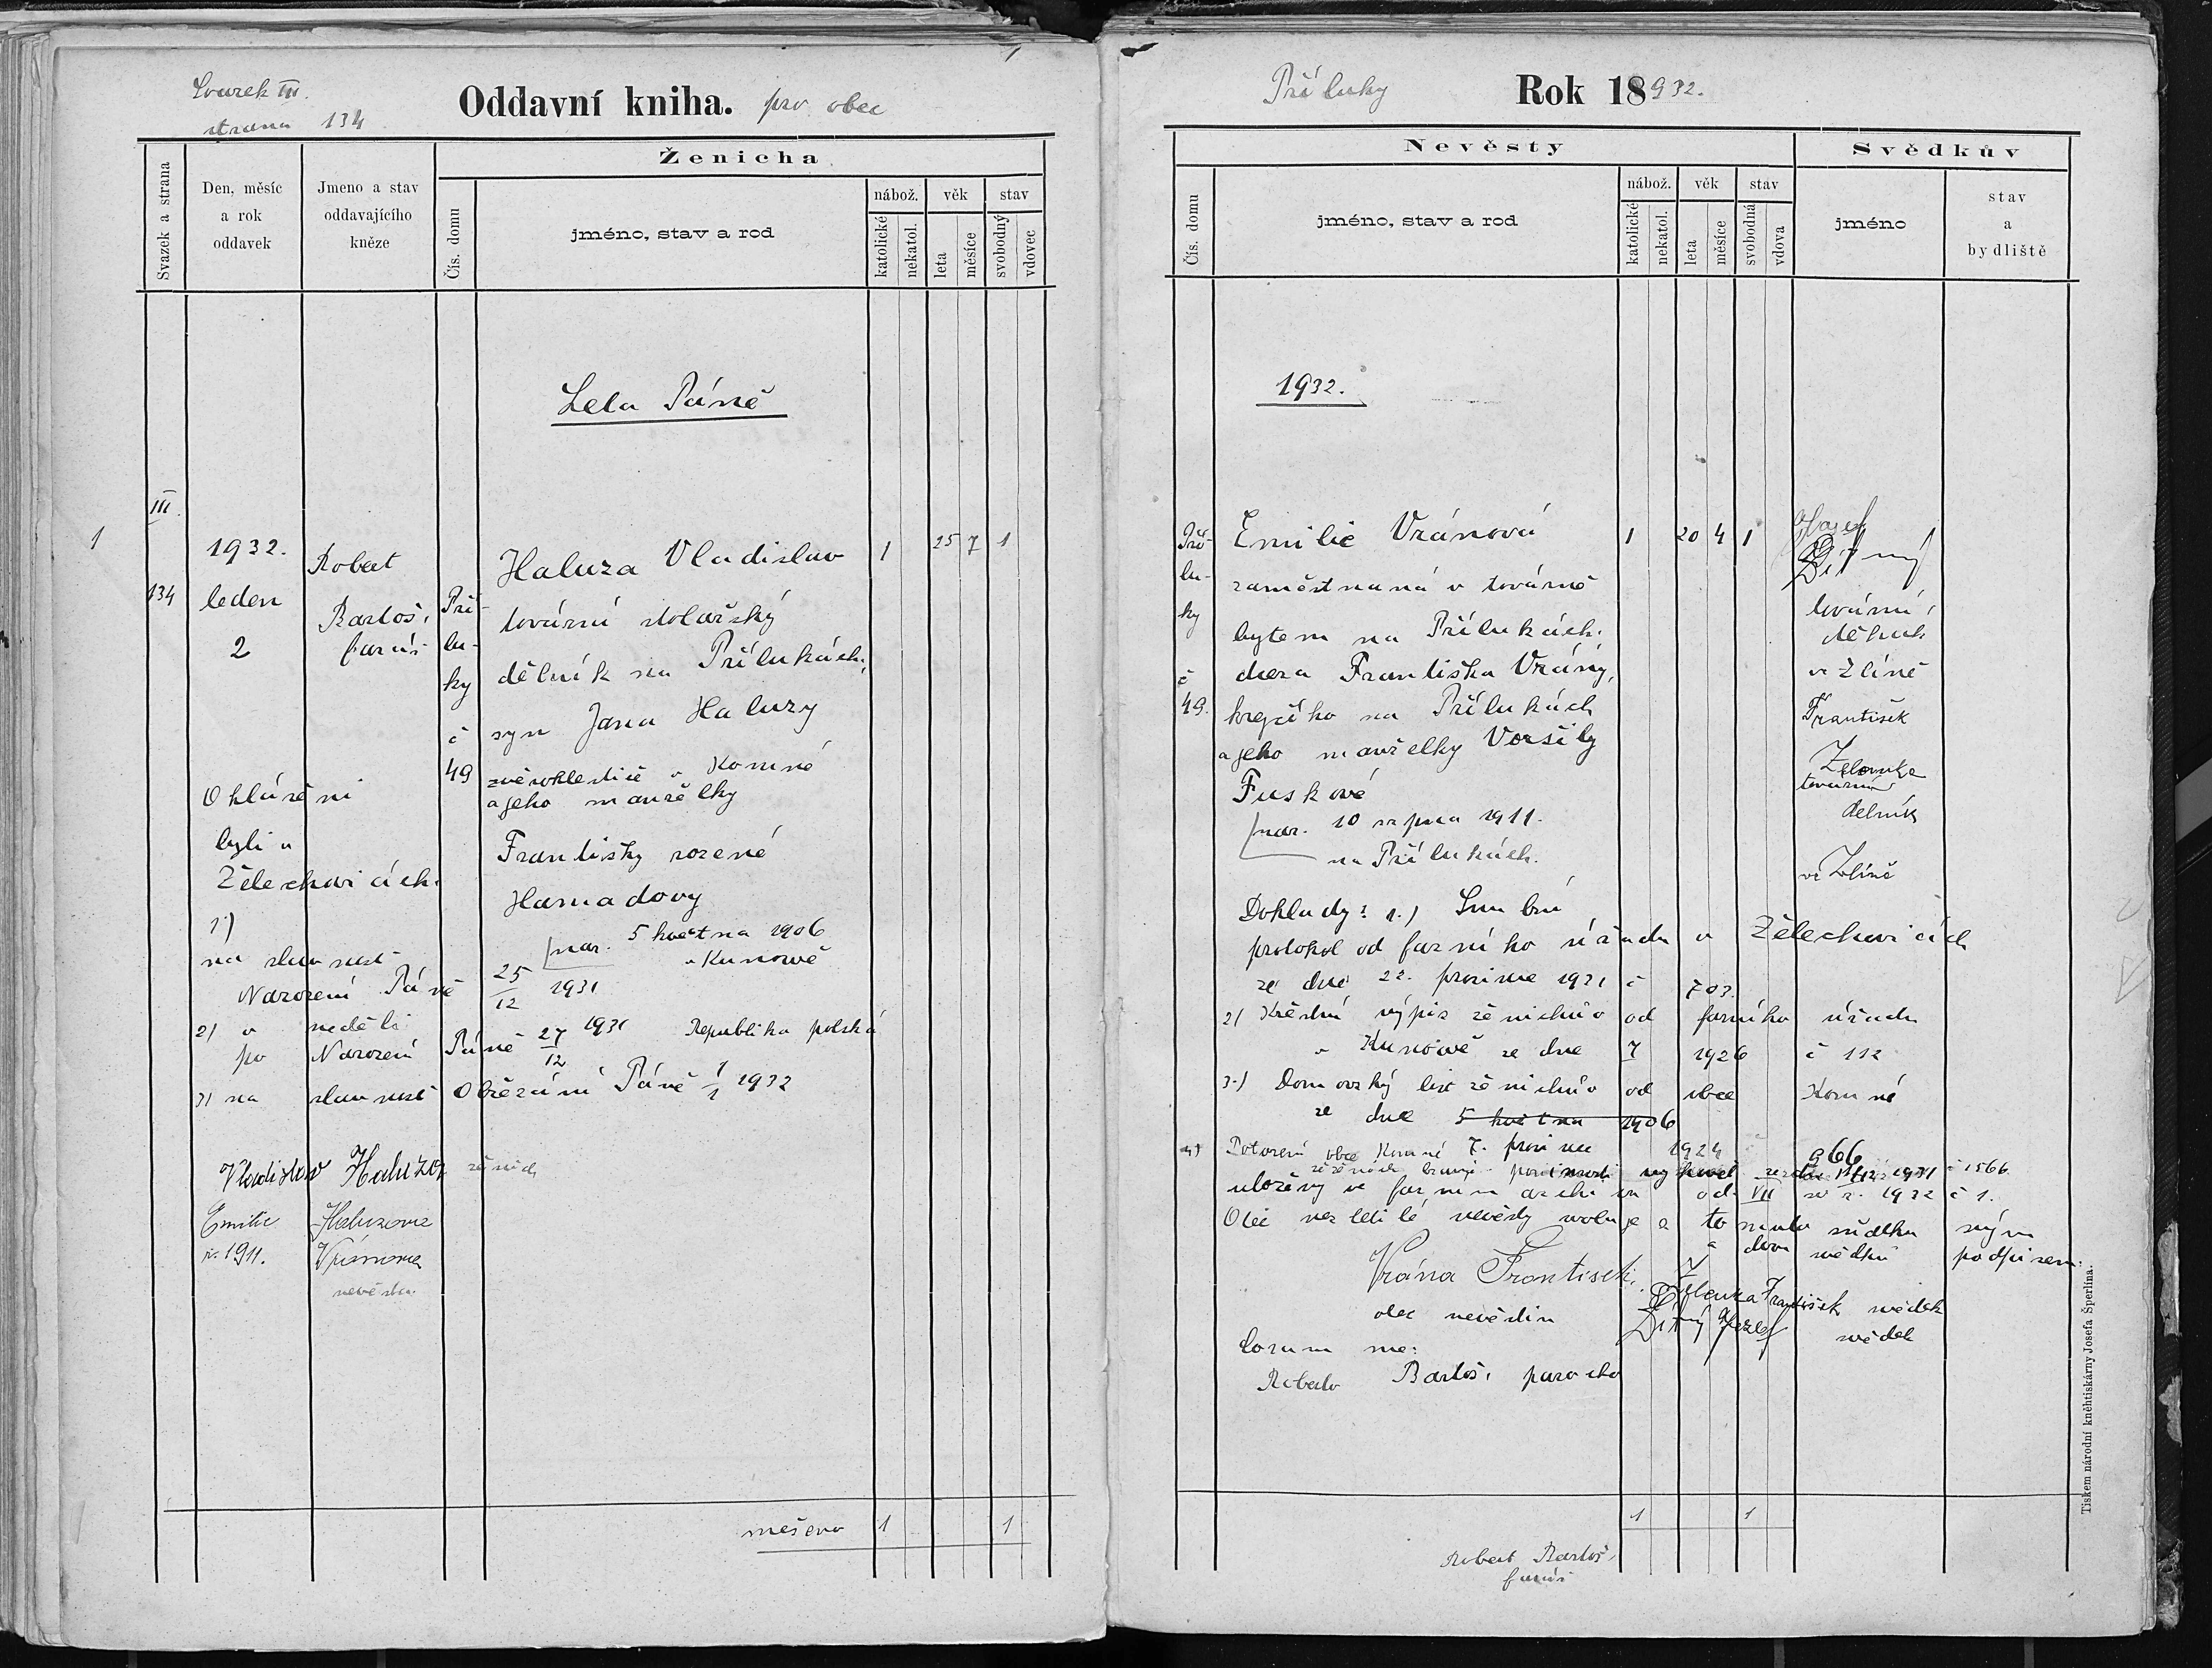 Svazek III.
strana 134
Oddavní kniha. pro obec
Svazek a strana
Den, měsíc
a rok
oddavek
Jmeno a stav
oddavajícího
kněze
Ženicha
Čís. domu
jméno, stav a rod
nábož.
katolické
nekatol.
věk
leta
měsíce
stav
svobodný
vdovec
Léta Páně
1
III.
134
1932.
leden
2
Robert
Bartoš,
farář
Pří-
lu-
ky
č
49
Haluza Vladislav
tovární stolařský
dělník na Přílukách,
syn Jana Haluzy
zvěrokleštiče v Komně
a jeho manželky
Františky rozené
Hamadovy
nar. 5 května 1906
v Kunowě
1
25 7
1
Ohlášeni
byli v
Želechovicích.
1) na slavnost
Narození Páně 25/12 1931
2) v neděli
po Narození Páně 27/12 1931 Republika polská
3) na slavnost Obřezání Páně 1/1 1932
Vladislav Haluza ženich
Emilie Haluzová
n. 1911. Vránová
nevěsta
1
1
Příluky Rok 18932.
Nevěsty
Čís. domu
jméno, stav a rod
nábož.
katolické
nekatol.
věk
leta
měsíce
stav
svobodná
vdova
Svědkův
jméno
stav
a
bydliště
1932.
Pří-
lu-
ky
č
49.
Emilie Vránová
zaměstnaná v továrně
bytem na Přílukách.
dcera Františka Vrány,
krejčího na Přílukách
a jeho manželky Voršily
Fuskové
nar. 10 srpna 1911.
na Přílukách.
1
20 4
1
Josef
Dítný
tovární
dělník
ve Zlíně
František
Zelenka
tovární
dělník
ve Zlíně
Doklady: 1.) Snubní
protokol od farního úřadu v Želechovicích
ze dne 22. prosince 1931 č 703.
2) Křestní výpis ženichův od farního úřadu
v Kunowě ze dne 7 1926 č 112
3.) Domovský list ženichův od obce Komné
ze dne 5 května 1906
4) Potvrzení obce Komné 7. prosince 1924 966
č 1566.
uloženy ve farním archivu od. VII sv r. 1932 č 1.
Otec nezletilé nevěsty svoluje k tomuto sňatku svým
a dvou svědků podpisem.
Vrána František.
otec nevěstin
Zelenka František svědek
Dítný Josef svědek
Coram me:
Roberto Bartoš, parocho
1
1
Robert Bartoš,
farář
Tiskem národní kněhtiskárny Josefa Šperlina.